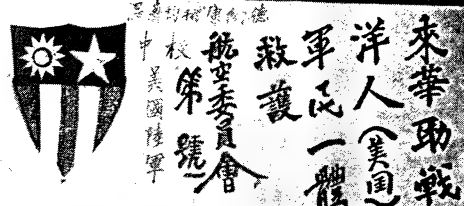 來華助戰
洋人（美国）
軍民一體
救護
航空委員會
第號
美國陸軍
中校